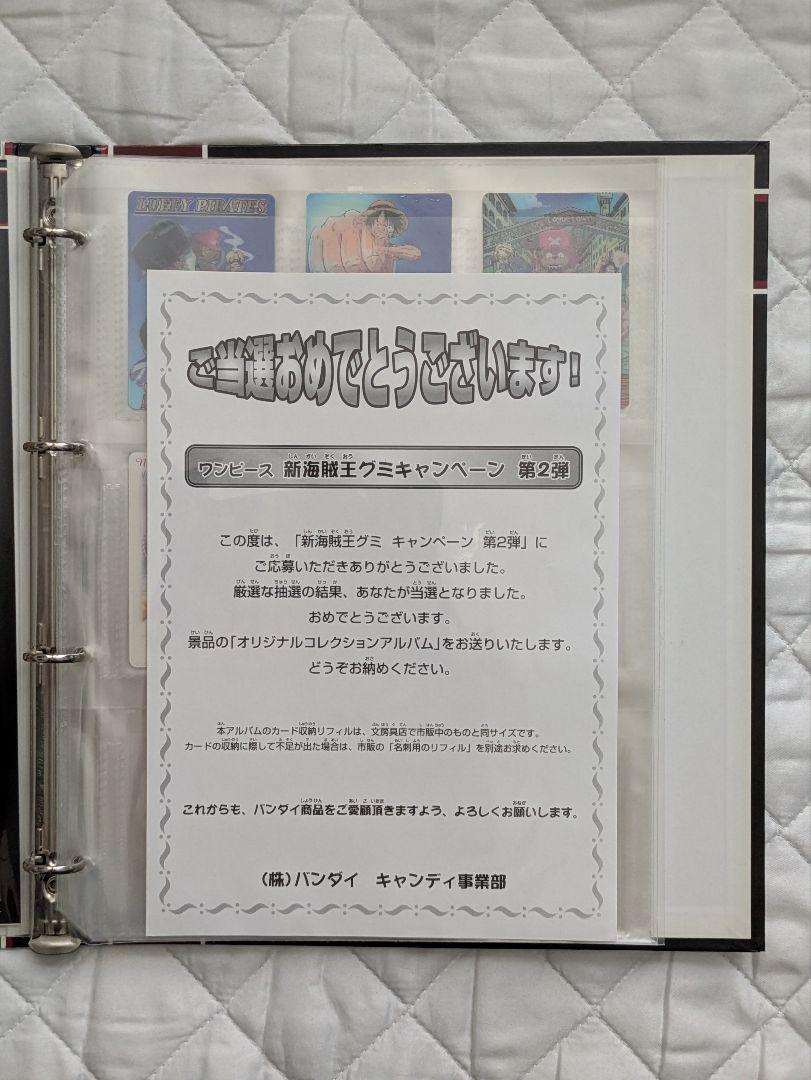 LUFFY PIRATES
ご当選おめでとうございます!
ワンピース 新海賊王グミキャンペーン 第2弾
この度は、「新海賊王グミ キャンペーン 第2弾」に
ご応募いただきありがとうございました。
厳選な抽選の結果、あなたが当選となりました。
おめでとうございます。
景品の「オリジナルコレクションアルバム」をお送りいたします。
どうぞお納めください。
本アルバムのカード収納リフィルは、文房具店で市販中のものと同サイズです。
カードの収納に際して不足が出た場合は、市販の「名刺用のリフィル」を別途お求めください。
これからも、バンダイ商品をご愛顧頂きますよう、よろしくお願いします。
(株)バンダイ キャンディ事業部